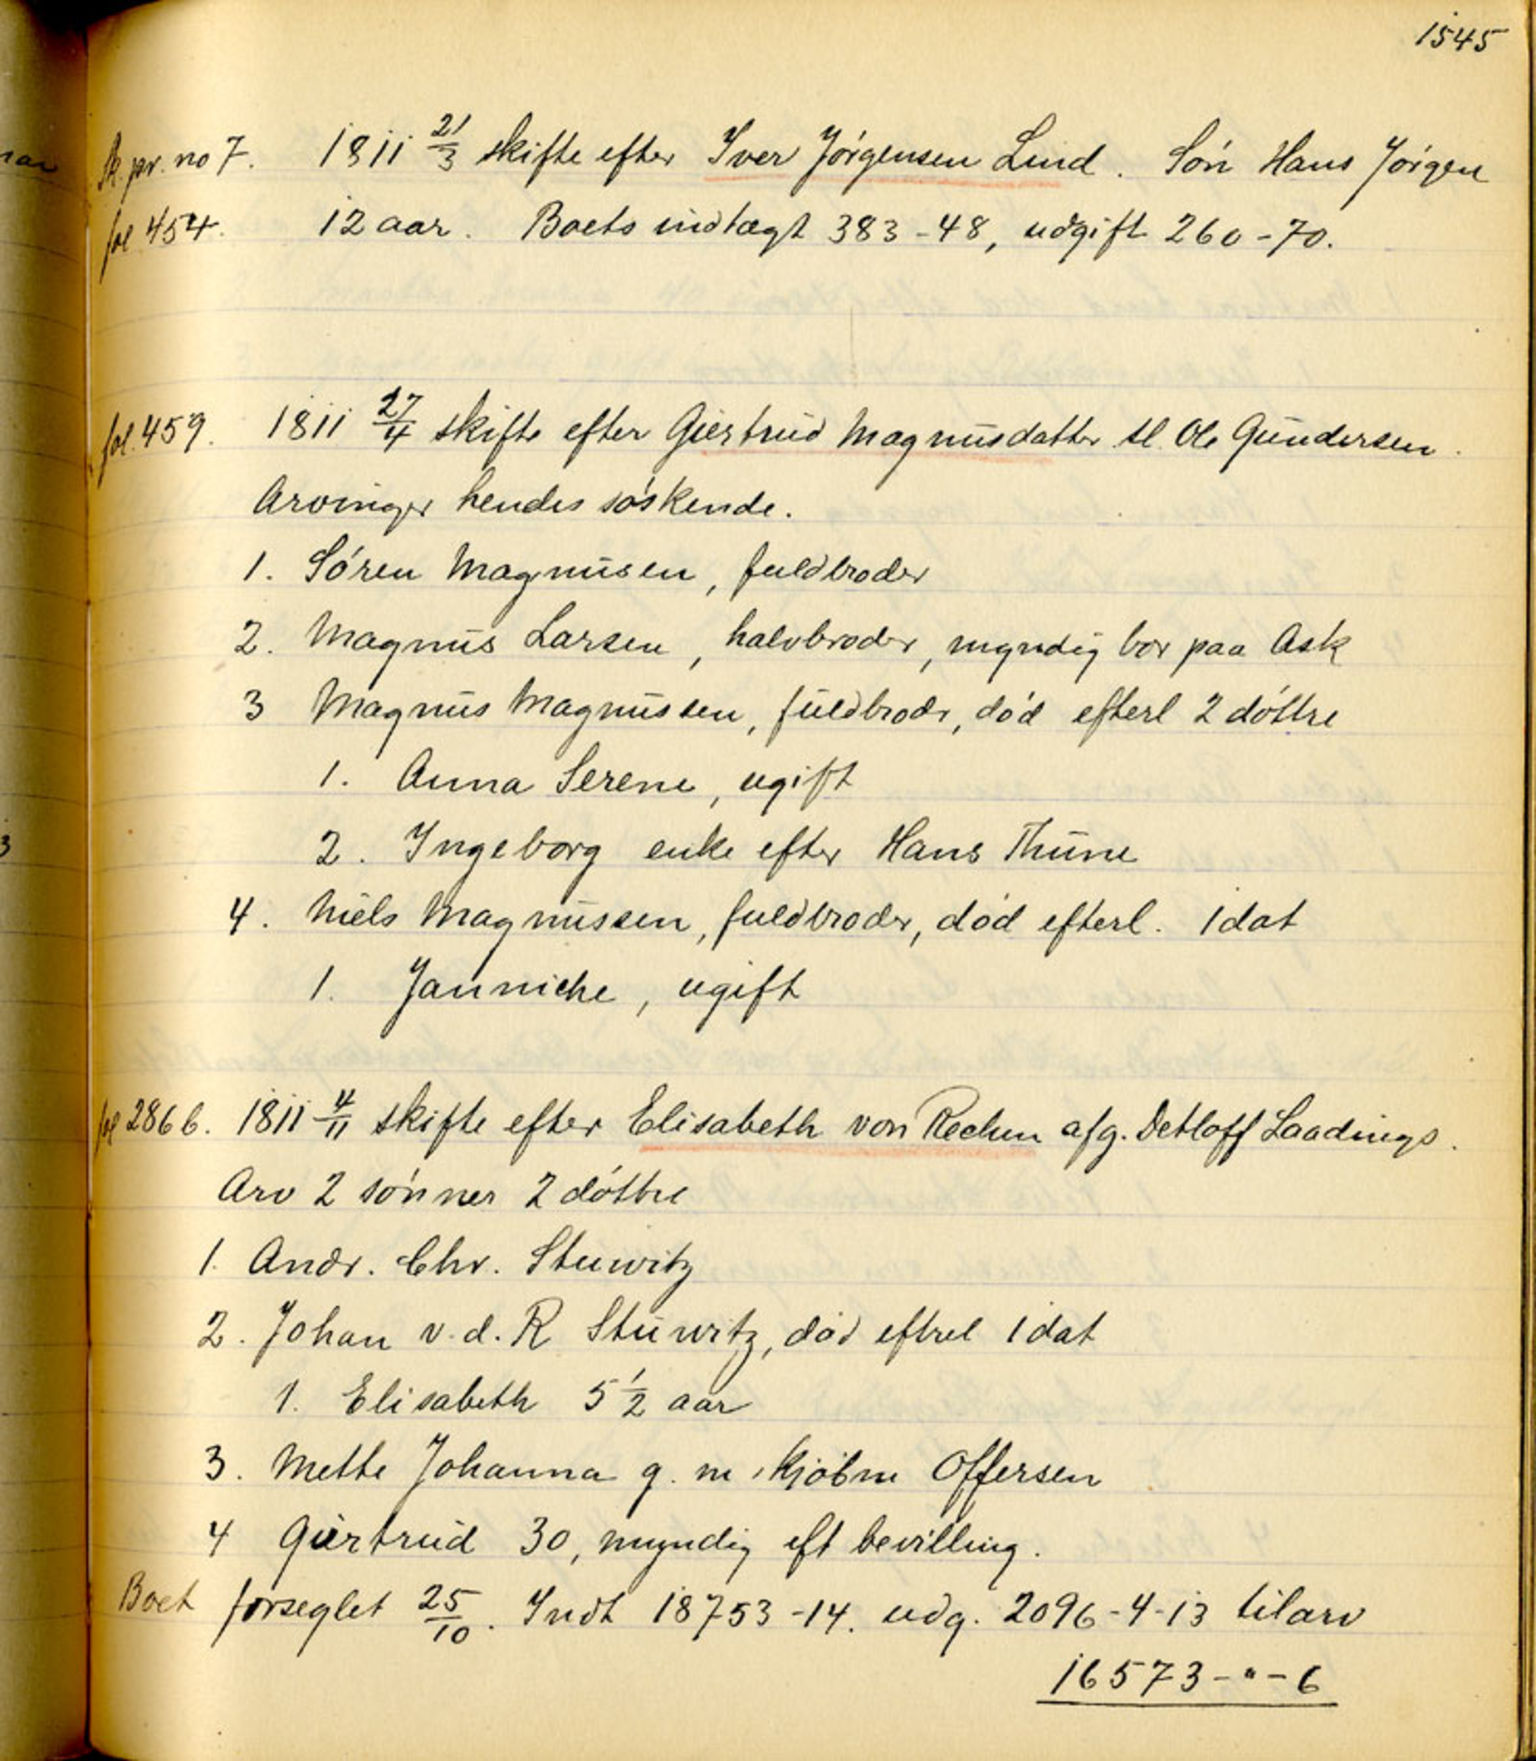 1545
Sk. pr. no 7. 1811 21/3 skifte efter Iver Jörgensen Lund. Sön Hans Jörgen
fol 454. 12 aar. Boets indtægt 383-48, udgift 260-70.
fol. 459. 1811 27/4 skifte efter Giertrud Magnusdatter sl. Ole Gundersen.
Arvinger hendes söskende.
1. Sören Magnusen, fuldbroder
2. Magnus Larsen, halvbroder, myndig bor paa Ask
3 Magnus Magnussen, fuldbrodr, död efterl 2 döttre
1. Anna Serene, ugift
2. Ingeborg enke efter Hans Thune
4. Niels Magnussen, fuldbroder, död efterl. 1 dat
1. Janniche, ugift
fol 286 b. 1811 4/11 skifte efter Elisabeth von Rechen afg. Detloff Laadings.
Arv 2 sönner 2 döttre
1. Andr. Chr. Stuwitz
2. Johan v. d. R Stuwitz, död eftrel 1 dat
1. Elisabeth 5 1/2 aar
3. Mette Johanna g. m. kjöbm Offersen
4 Giertrud 30, myndig eft bevilling.
Boet forseglet 25/10. Indt 18753-14. udg. 2096-4-13 til arv
16573-"-6